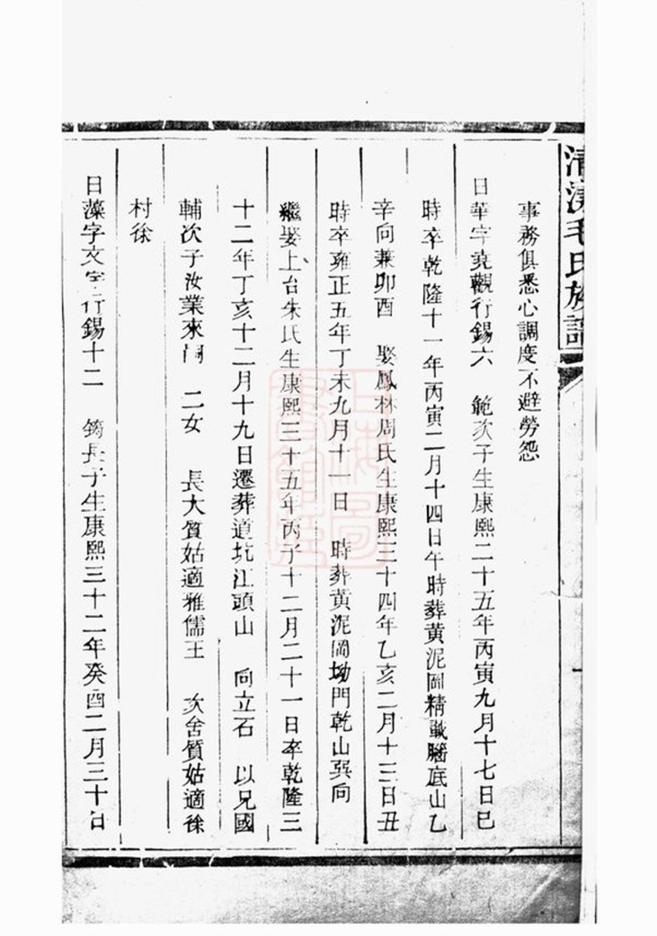 清漾毛氏族譜
事務俱悉心調度不避勞怨
日華字堯觀行錫六　範次子生康熙二十五年丙寅九月十七日巳
時卒乾隆十一年丙寅二月十四日午時葬黃泥岡精 腦底山乙
辛向兼卯酉　娶鳳林周氏生康熙三十四年乙亥二月十三日丑
時卒雍正五年丁未九月十一日　時葬黃泥岡坳門乾山巽向
繼娶上台朱氏生康熙三十五年丙子十二月二十一日卒乾隆三
十二年丁亥十二月十九日遷葬道坑江頭山　向立石　以兄國
輔次子汝業來嗣　二女　長大質姑適雅儒王　次舍質姑適徐
村徐
日藻字文 行錫十二　筠長子生康熙三十二年癸酉二月三十日